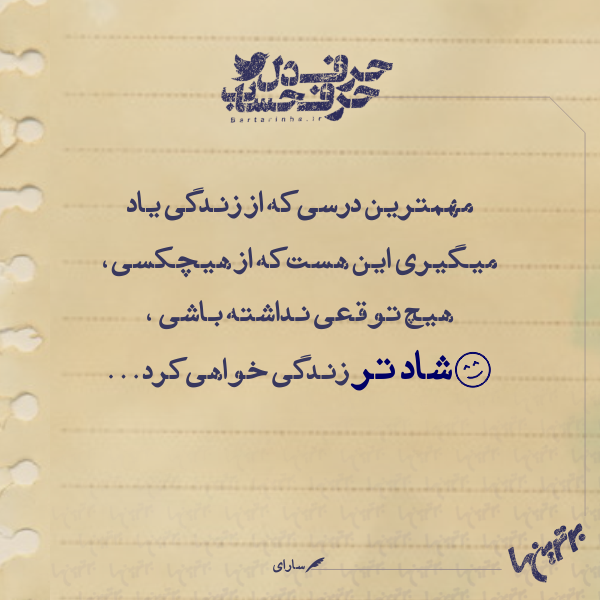 حرف دل
حرف حساب
Bartarinha.ir
مهمترین درسی که از زندگی یاد
میگیری این هست که از هیچکسی،
هیچ توقعی نداشته باشی ،
شاد تر زندگی خواهی کرد...
سارای
برترین ها